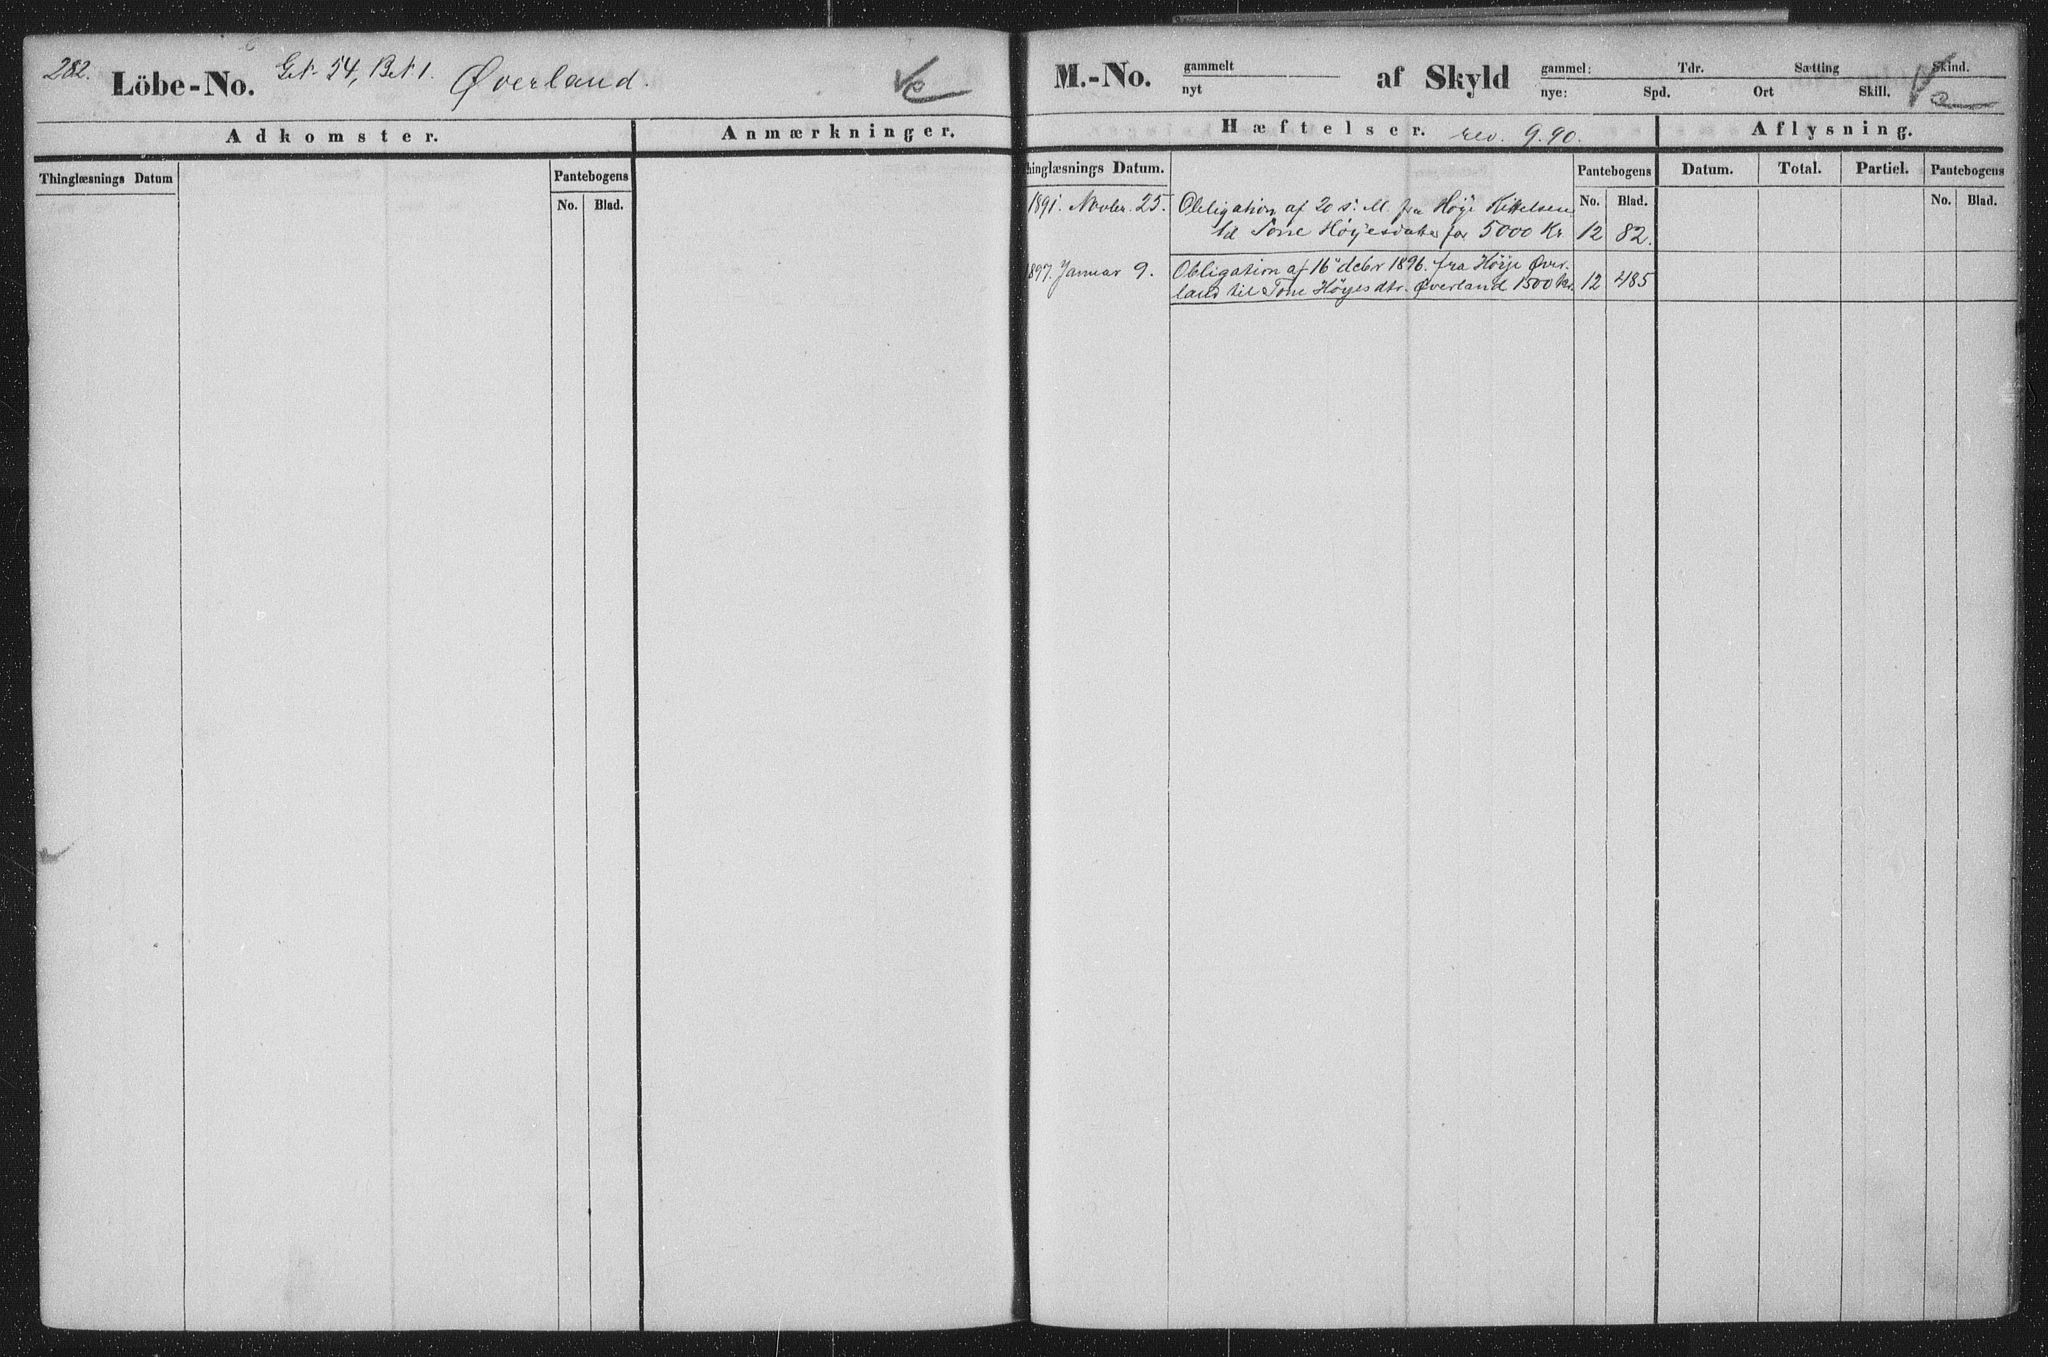 282.
Löbe-No. Gr. 54, Br. 1. Øverland.
Adkomster. Anmærkninger.
Thinglæsnings Datum Pantebogens
No. Blad.
M.-No. gammelt af Skyld gammel: Tdr. Sætting Skind.
nyt nye: Spd. Ort Skill.
Hæftelser. rev. 9.90. Aflysning.
Thinglæsnings Datum. Pantebogens Datum. Total. Partiel. Pantebogens
No. Blad. No. Blad.
1891. Novbr. 25. Obligation af 20 s. M. fra Høye Kittelsen
til Tone Høyesdatter for 5000 Kr. 12 82.
1897. Januar 9. Obligation af 16 debr 1896. fra Høye Øver-
land til Tone Høyesdtr. Øverland 1500 kr. 12 485